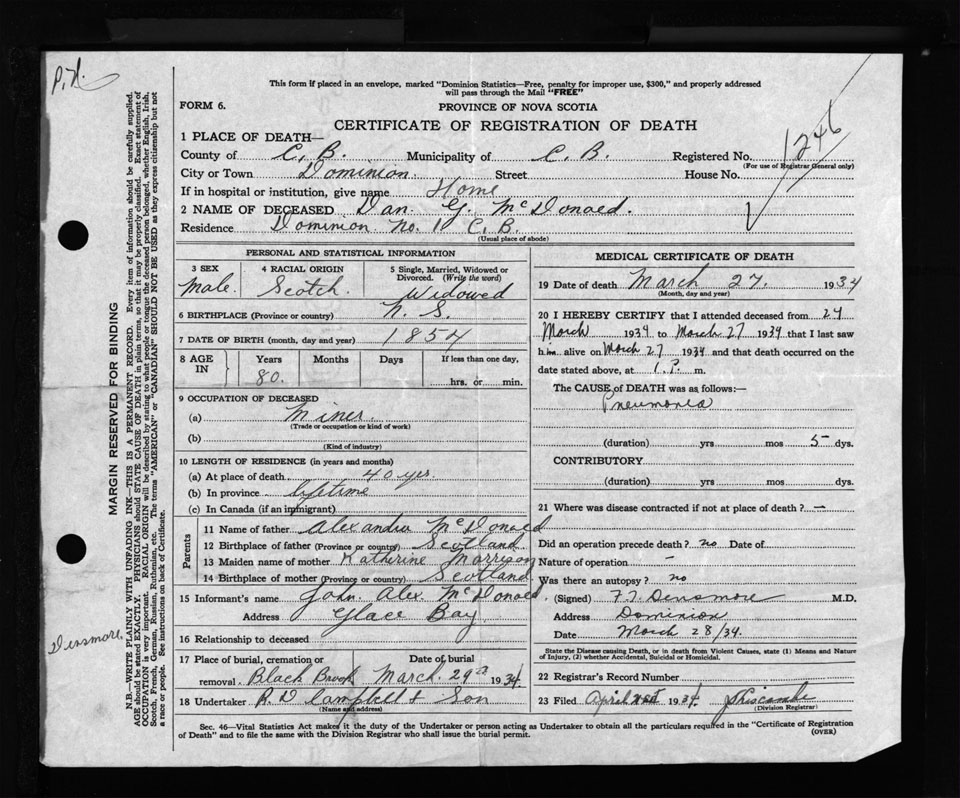 P.N.
This form if placed in an envelope, marked "Dominion Statistics—Free, penalty for improper use, $300," and properly addressed
will pass through the Mail "FREE"
FORM 6.
PROVINCE OF NOVA SCOTIA
CERTIFICATE OF REGISTRATION OF DEATH
1246
1 PLACE OF DEATH—
County of C. B. Municipality of C. B. Registered No.
(For use of Registrar General only)
City or Town Dominion Street House No.
If in hospital or institution, give name Home
2 NAME OF DECEASED Dan. G. McDonald.
Residence Dominion No. 1 C. B.
(Usual place of abode)
PERSONAL AND STATISTICAL INFORMATION
3 SEX 4 RACIAL ORIGIN 5 Single, Married, Widowed or
Divorced. (Write the word)
Male. Scotch. Widowed
6 BIRTHPLACE (Province or country) N. S.
7 DATE OF BIRTH (month, day and year) 1854
8 AGE IN Years Months Days If less than one day,
80. hrs. or min.
9 OCCUPATION OF DECEASED
(a) Miner.
(Trade or occupation or kind of work)
(b)
(Kind of industry)
10 LENGTH OF RESIDENCE (in years and months)
(a) At place of death 40 yrs
(b) In province lifetime
(c) In Canada (if an immigrant)
Parents
11 Name of father Alexander McDonald
12 Birthplace of father (Province or country) Scotland
13 Maiden name of mother Katherine Morrison
14 Birthplace of mother (Province or country) Scotland
15 Informant's name John. Alex. McDonald.
Address Glace Bay
16 Relationship to deceased
17 Place of burial, cremation or Date of burial
removal. Black Brook March. 29th 1934.
18 Undertaker R. D Campbell & Son
(Name and address)
MEDICAL CERTIFICATE OF DEATH
19 Date of death March 27. 1934
(Month, day and year)
20 I HEREBY CERTIFY that I attended deceased from 24
March 1934 to March 27 1934 that I last saw
him alive on March 27 1934 and that death occurred on the
date stated above, at 1. P. m.
The CAUSE of DEATH was as follows:—
Pneumonia
(duration) yrs mos 5 dys.
CONTRIBUTORY
(duration) yrs. mos. dys.
21 Where was disease contracted if not at place of death? —
Did an operation precede death? no Date of
Nature of operation —
Was there an autopsy? no
(Signed) F. T. Densmore M.D.
Address Dominion
Date March 28/34.
State the Disease causing Death, or in death from Violent Causes, state (1) Means and Nature
of Injury, (2) whether Accidental, Suicidal or Homicidal.
22 Registrar's Record Number
23 Filed April 1934
(Division Registrar)
Sec. 46—Vital Statistics Act makes it the duty of the Undertaker or person acting as Undertaker to obtain all the particulars required in the "Certificate of Registration
of Death" and to file the same with the Division Registrar who shall issue the burial permit.
(OVER)
MARGIN RESERVED FOR BINDING
N.B.—WRITE PLAINLY WITH UNFADING INK—THIS IS A PERMANENT RECORD. Every item of information should be carefully supplied.
AGE should be stated EXACTLY. PHYSICIANS should STATE CAUSE OF DEATH in plain terms, so that it may be properly classified. Exact statement of
OCCUPATION is very important. RACIAL ORIGIN will be described by stating to what people or tongue the deceased person belonged, whether English, Irish,
Scotch, French, German, Russian, Ruthenian, etc. The terms "AMERICAN" or "CANADIAN" SHOULD NOT BE USED as they express citizenship but not
a race or people. See instructions on back of Certificate.
Densmore.